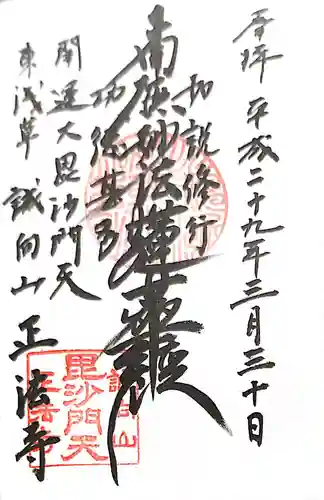 奉拝 平成二十九年三月三十日
如説修行
南無妙法蓮華経
功徳甚多
開運大毘沙門天
東浅草 誠向山 正法寺
毘沙門天